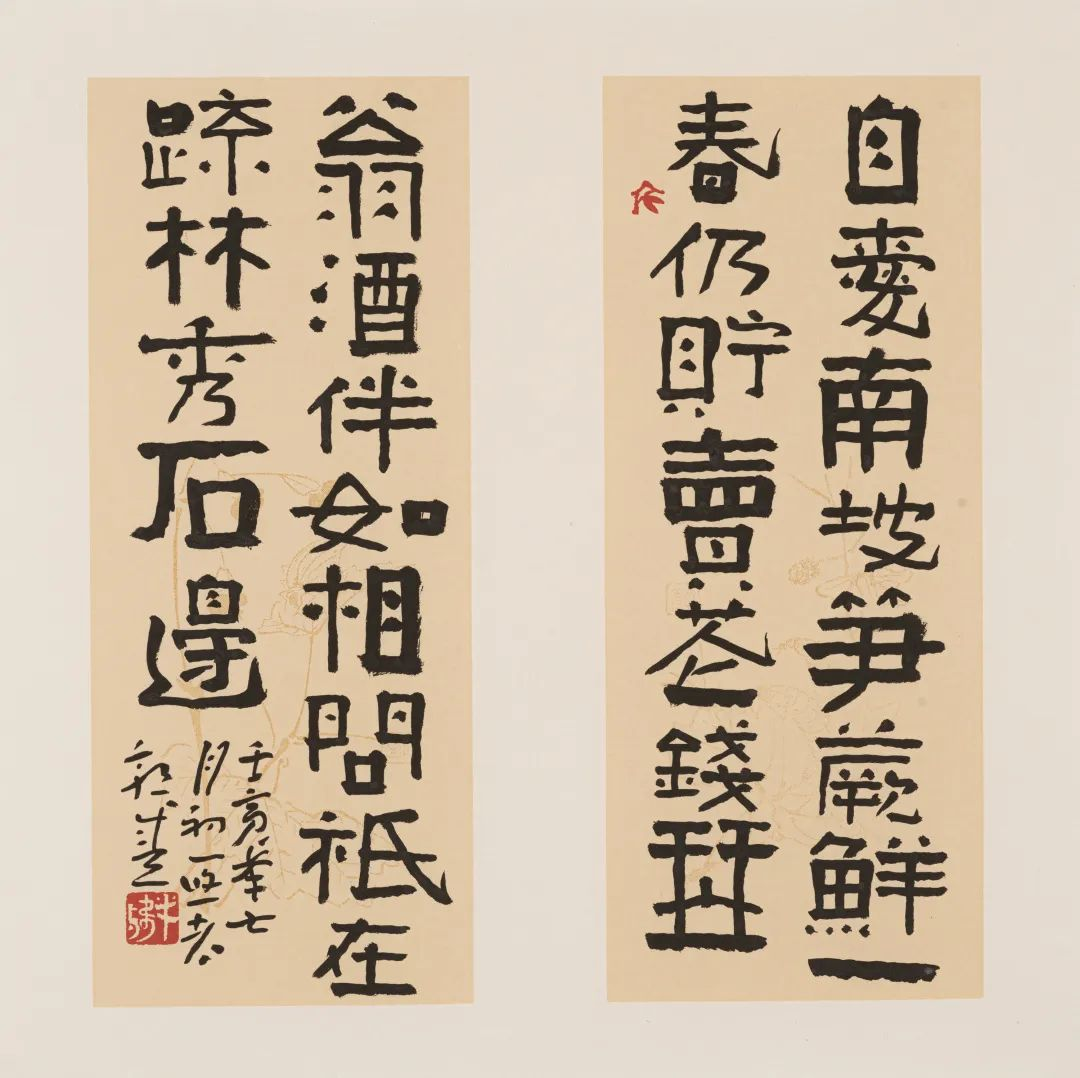 自愛南坡笋蕨鮮一
春仍貯賣花錢琴
翁酒伴如相問祇在
疏林秀石邊
壬寅年七
月初一